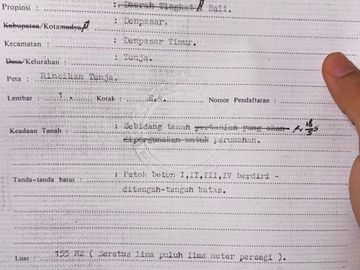 Propinsi : Daerah Tingkat I Bali.
Kabupaten/Kotamadya : Denpasar.
Kecamatan : Denpasar Timur.
Desa/Kelurahan : Tonja.
Peta : Rincikan Tonja.
Lembar : 1. Kotak : N.4. Nomor Pendaftaran :
Keadaan Tanah : Sebidang tanah pertanian yang akan
dipergunakan untuk perumahan.
Tanda-tanda batas : Patok beton I,II,III,IV berdiri -
ditengah-tengah batas.
Luas : 155 M2 ( Seratus lima puluh lima meter persegi ).